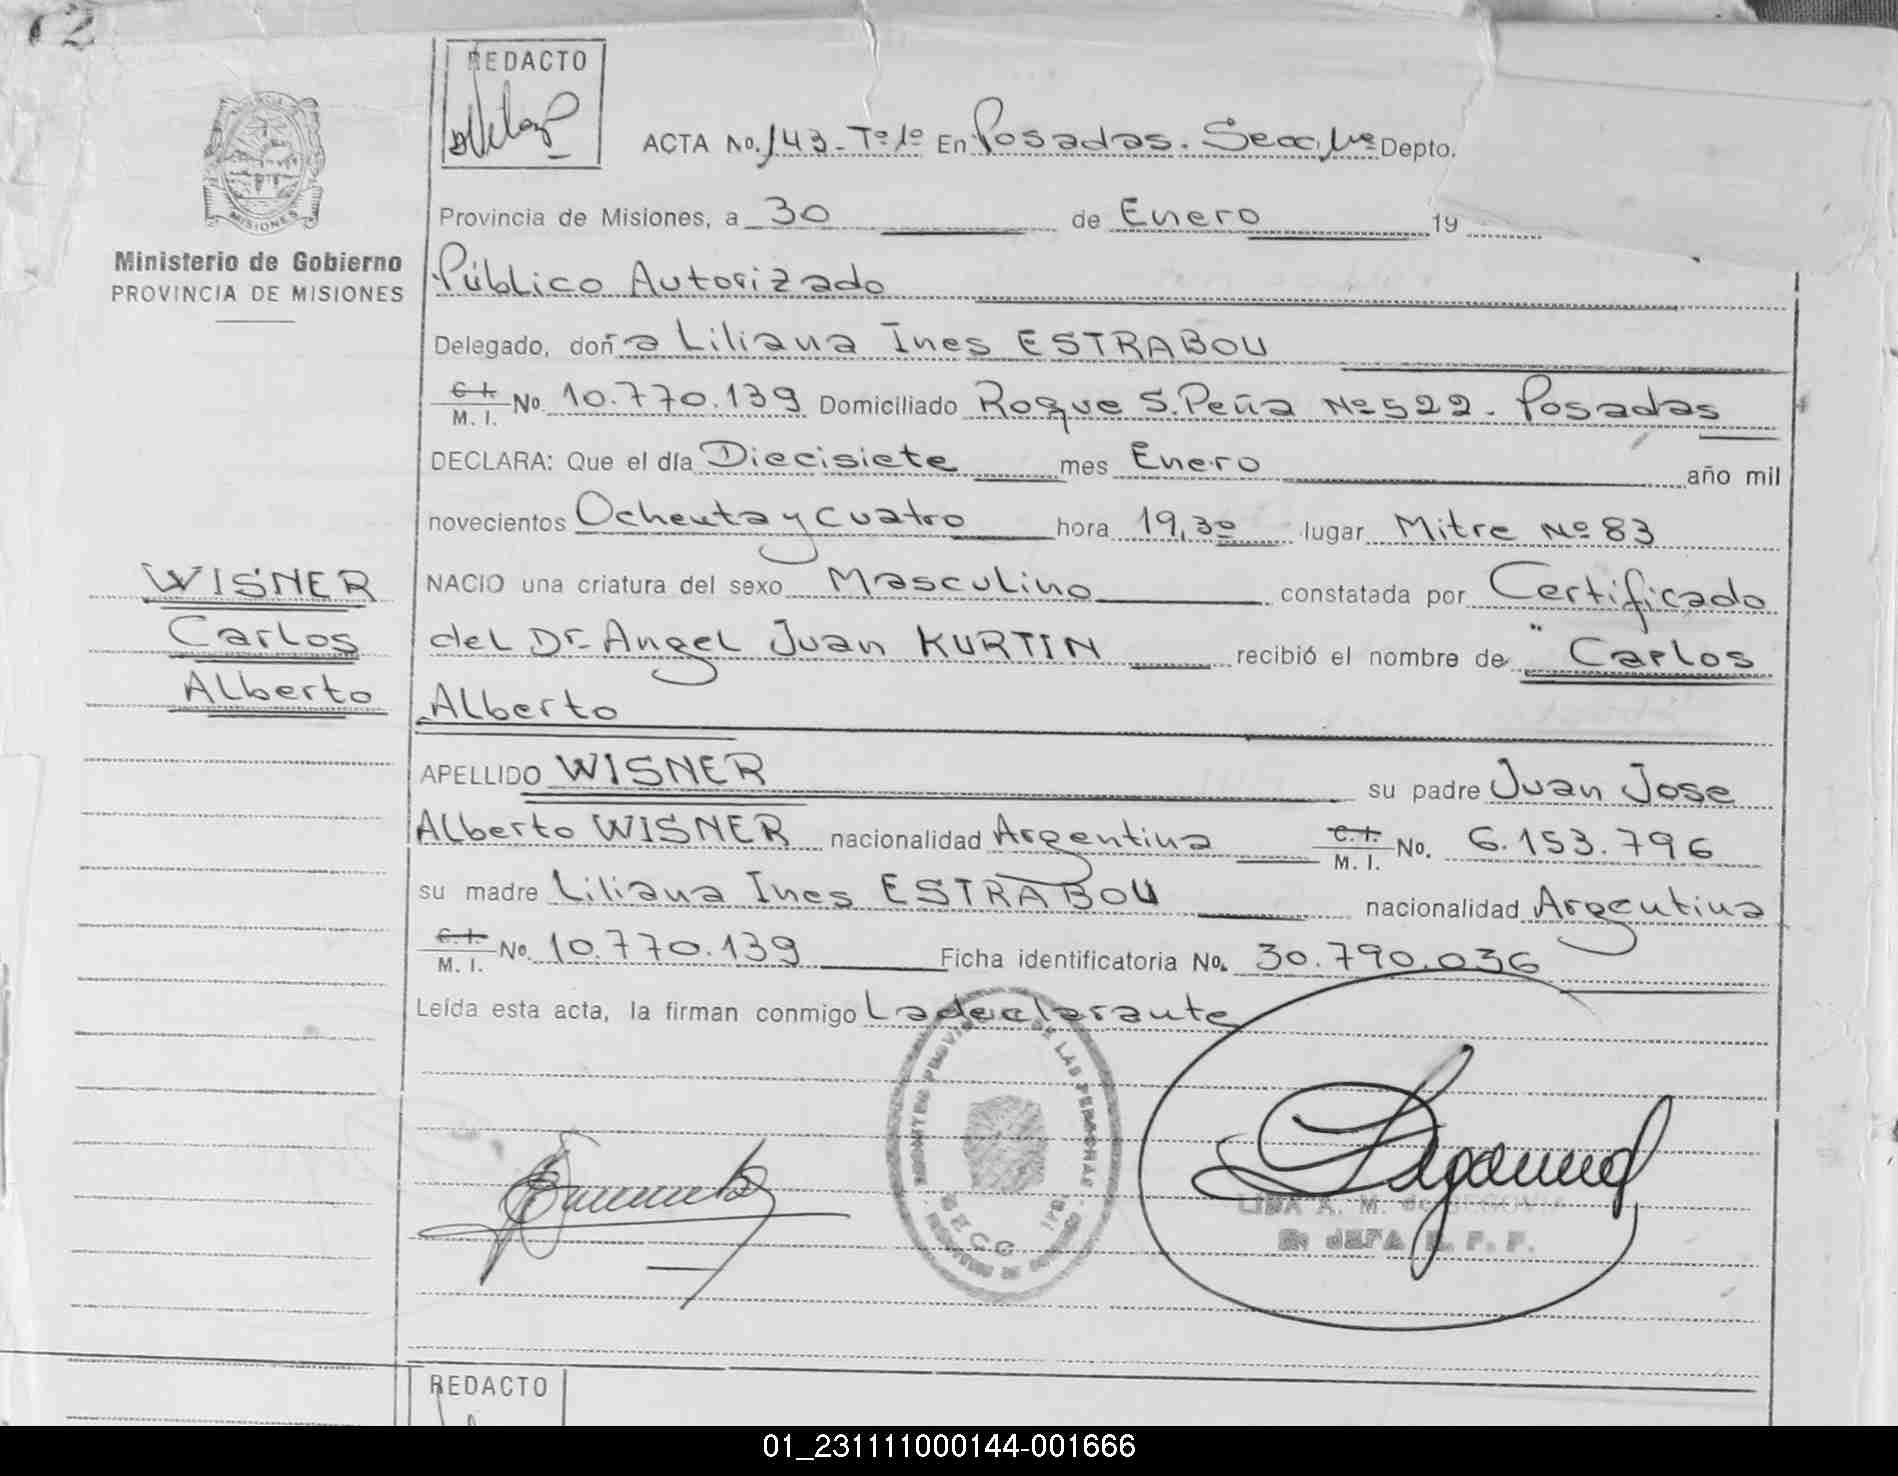 12
REDACTO
ACTA No. 143 - Tº 1º En Posadas. Secc. 1ra Depto.
MISIONES
Provincia de Misiones, a 30 de Enero 19
Ministerio de Gobierno
PROVINCIA DE MISIONES
Público Autorizado
Delegado, doña Liliana Ines ESTRABOU
C.I. M. I. No. 10.770.139 Domiciliado Roque S. Peña Nº 522 - Posadas
DECLARA: Que el día Diecisiete mes Enero año mil
novecientos Ochenta y Cuatro hora 19,30 lugar Mitre Nº 83
WISNER
Carlos
Alberto
NACIO una criatura del sexo Masculino constatada por Certificado
del Dr. Angel Juan KURTIN recibió el nombre de "Carlos
Alberto
APELLIDO WISNER su padre Juan Jose
Alberto WISNER nacionalidad Argentina C.I. M. I. No. 6.153.796
su madre Liliana Ines ESTRABOU nacionalidad Argentina
C.I. M. I. No. 10.770.139 Ficha identificatoria No. 30.790.036
Leída esta acta, la firman conmigo La declarante
DE LAS PERSONAS
SECC 1RA
LIDA A. M. de SEGOVIA
JEFA
REDACTO
01_231111000144-001666